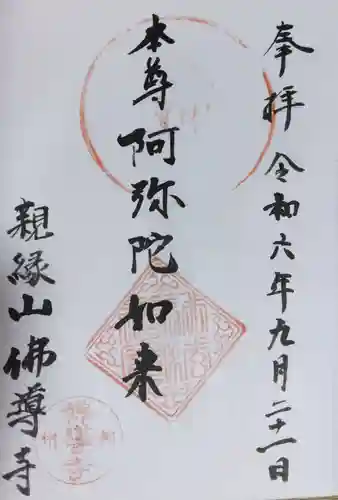 奉拝 令和六年九月二十一日
本尊 阿弥陀如来
親縁山 佛導寺